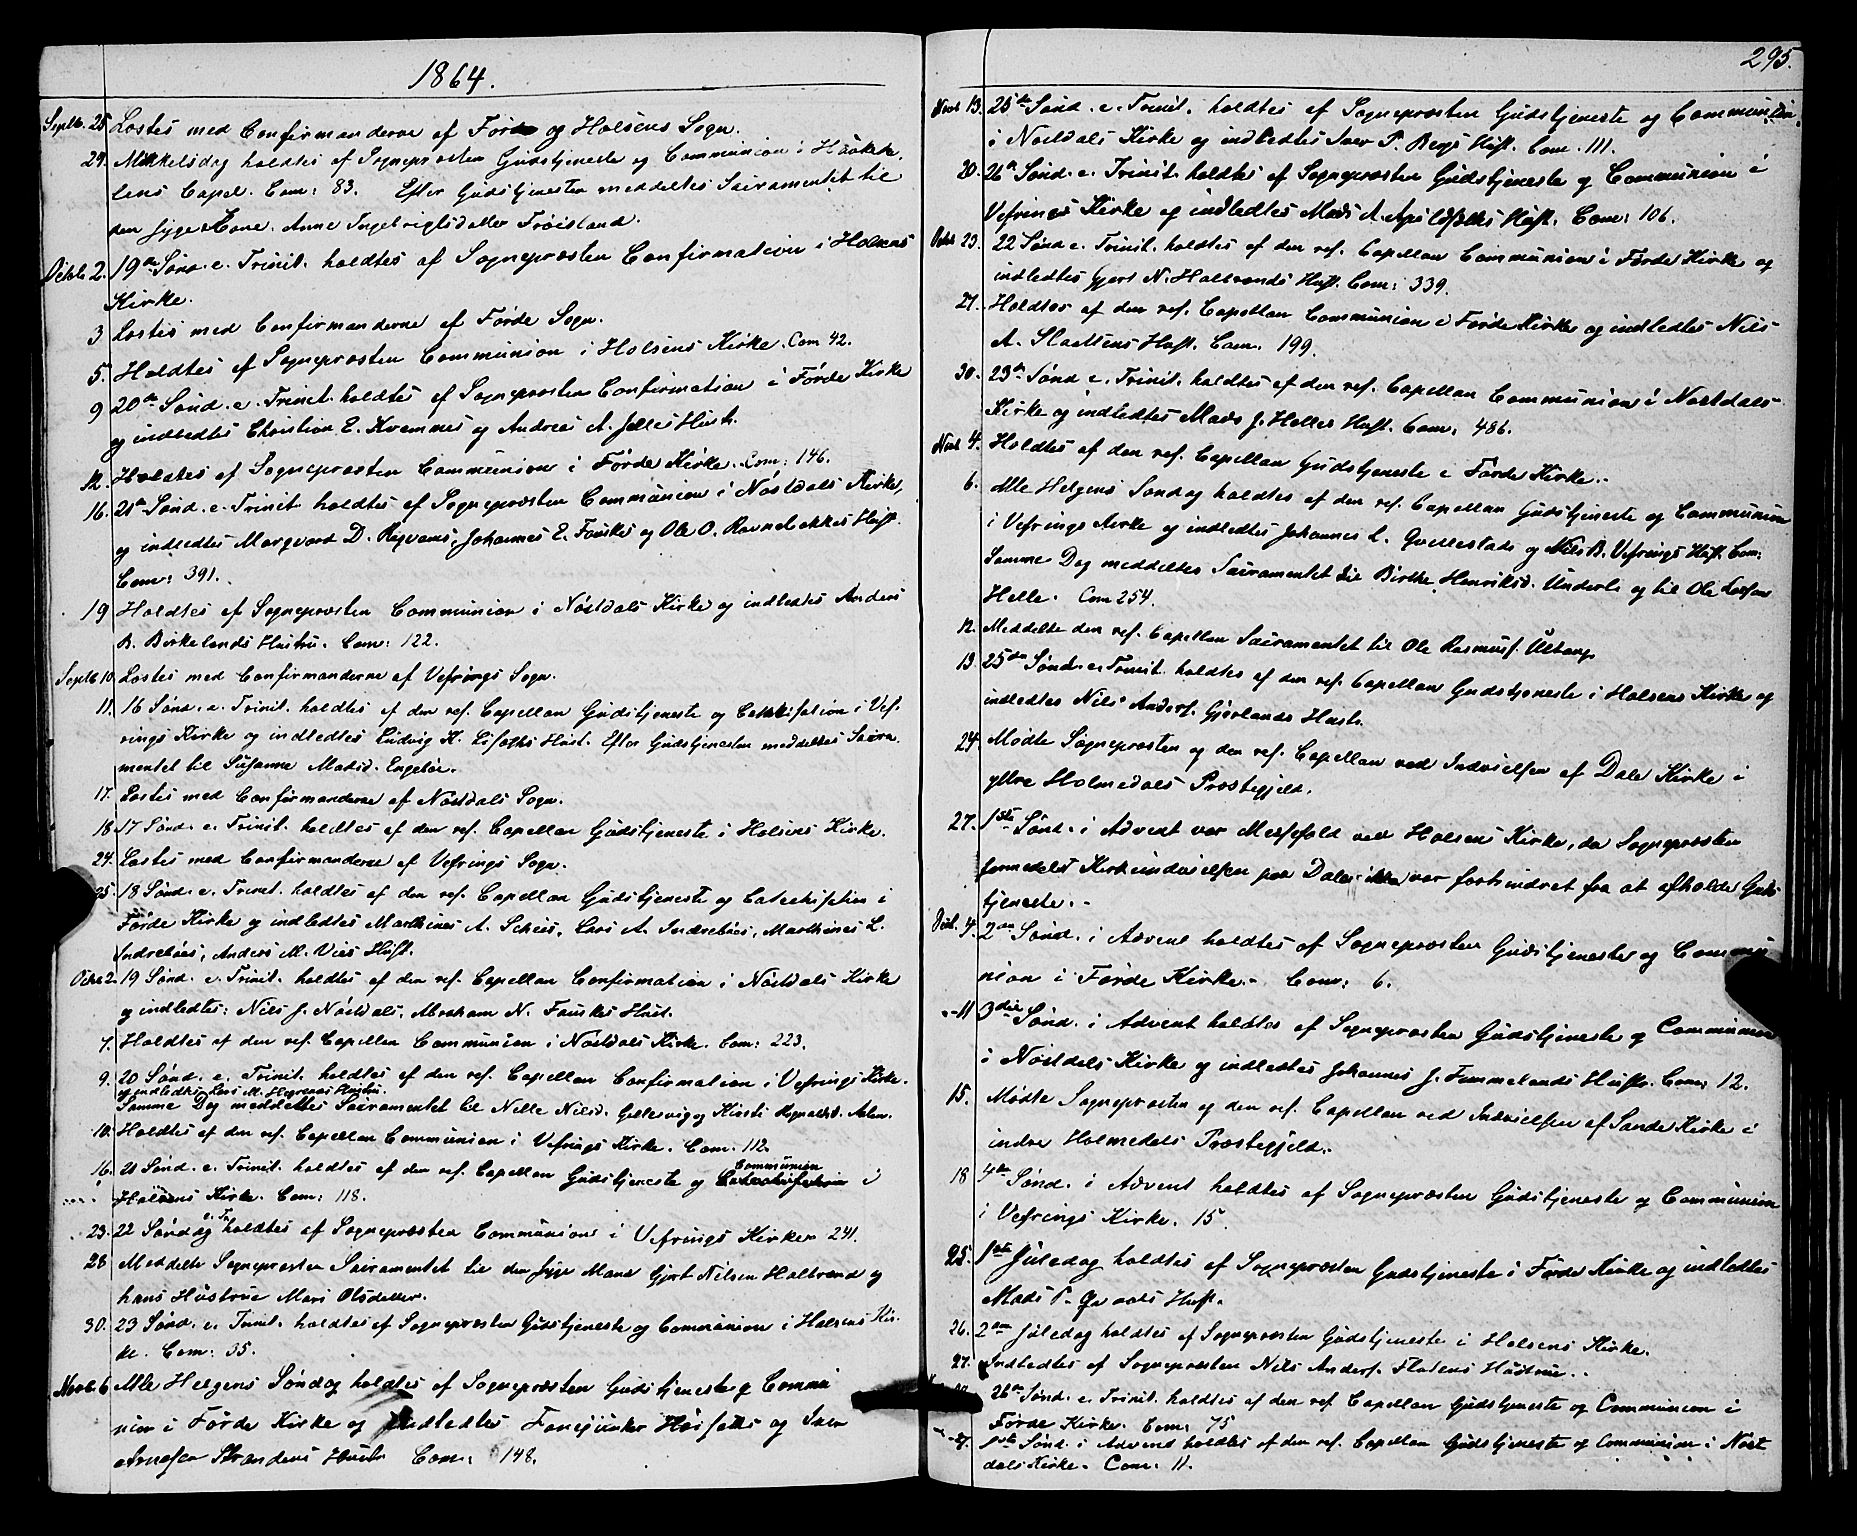 1864.
Septb. 25 Læstes med Confirmanderne af Førde og Holsens Sogn.
29. Mikkelsdag holdtes af Sognepræsten Gudstjeneste og Communion i Haukedalens
Capel. Com: 83. Efter Gudstjenesten meddeltes Sacramentet til
den syge Kone Anne Ingebrigtsdatter Trøisland.
Octob. 2. 19de Sønd. e. Trinit. holdtes af Sognepræsten Confirmation i Holsens
Kirke.
3 Læstes med Confirmanderne af Førde Sogn.
5. Holdtes af Sognepræsten Communion i Holsens Kirke. Com 42.
9 20de Sønd. e. Trinit. holdtes af Sognepræsten Confirmation i Førde Kirke
og indledtes Christian E. Kvammes og Andreas A. Hustr.
12. Holdtes af Sognepræsten Communion i Førde Kirke. Com: 146.
16. 21de Sønd. e. Trinit. holdtes af Sognepræsten Communion i Nøstdals Kirke,
og indledtes D. Johannes E. Fauske og Ole O. Ravnebækkes Hust.
Com: 391.
19 Holdtes af Sognepræsten Communion i Nøstdals Kirke og indledtes Anders
B. Birkelands Hustru. Com: 122.
Septb 10. Læstes med Confirmanderne af Vefrings Sogn.
11. 16 Sønd. e. Trinit. holdtes af den res. Capellan Gudstjeneste og Catekisation i Vef-
rings Kirke og indledtes Ludvig K. Hust. Efter Gudstjenesten meddeltes Sacra-
mentet til Susanne Madsd. Engebø.
17. Læstes med Confirmanderne af Nøstdals Sogn.
18. 17 Sønd. e. Trinit. holdtes af den res. Capellan Gudstjeneste i Holsens Kirke.
24. Læstes med Confirmanderne af Vefrings Sogn.
25. 18 Sønd. e. Trinit. holdtes af den res. Capellan Gudstjeneste og Catechisation i
Førde Kirke og indledtes Marthinus A. Lars A. Indrebøes, Marthinus L.
Indrebøes, Anders M. Vies Hust.
Octbr 2. 19 Sønd. e. Trinit. holdtes af den res. Capellan Confirmation i Nøstdals Kirke
og indledtes: Nils J. Nøstdals, Abraham N. Fauskes Hust.
7. Holdtes af den res. Capellan Communion i Nøstdals Kirke. Com: 223.
9. 20 Sønd. e. Trinit. holdtes af den res. Capellan Confirmation i Vefrings Kirke.
og indledtes Lars M. Hustru.
Samme Dag meddeltes Sacramentet til Nille Nilsd. og Kirsti
10. Holdtes af den res. Capellan Communion i Vefrings Kirke. Com. 112.
16. 21 Sønd. e. Trinit. holdtes af den res. Capellan Gudstjeneste og Communion i
Holsens Kirke. Com: 118.
23. 22 Søndag e. Tr. holdtes af Sognepræsten Communion i Vefrings Kirke 241.
28 Meddelte Sognepræsten Sacramentet til den syge Mand Gjert Nilsen Halbrend og
hans Hustrue Mari Olsdatter.
30. 23 Sønd. e. Trinit. holdtes af Sognepræsten Gudstjeneste og Communion i Holsens Kir-
ke. Com: 35.
Novb. 6 Alle Helgens Søndag holdtes af Sognepræsten Gudstjeneste og Commu
nion i Førde Kirke og indledtes Fanejunker Hafstads og Iver
Arnesen Strandens Hustr. Com: 148.
295.
Novb 13. 25de Sønd. e. Trinit. holdtes af Sognepræsten Gudstjeneste og Communion
i Nøstdals Kirke og indledtes Iver P. Bergs Hust. Com. 111.
20. 26de Sønd. e. Trinit. holdtes af Sognepræsten Gudstjeneste og Communion i
Vefrings Kirke og indledtes Mads A. Hust. Com: 106.
Octob 23. 22 Sønd e. Trinit. holdtes af den res. Capellan Communion i Førde Kirke og
indledtes Gjert N. Halbrends Hust. Com: 339.
27. Holdtes af den res. Capellan Communion i Førde Kirke og indledtes Nils
A. Slaattens Hust. Com. 199.
30. 23de Sønd e. Trinit. holdtes af den res. Capellan Communion i Nøstdals
Kirke og indledtes Mads J. Helles Hust. Com: 486.
Novb 4. Holdtes af den res. Capellan Gudstjeneste i Førde Kirke.
6. Alle Helgens Søndag holdtes af den res. Capellan Gudstjeneste og Communion
i Vefrings Kirke og indledtes Johannes L. Qvellestads og Nils B. Vefrings Hust. Com:
Samme Dag meddeltes Sacramentet til Birthe Henriksd. Underli og til Ole
Helle. Com 254.
12. Meddelte den res. Capellan Sacramentet til Ole Rasmus.
13. 25de Sønd. e. Trinit. holdtes af den res. Capellan Gudstjeneste i Holsens Kirke og
indledtes Nils Anders. Gjerlands Hustr.
24. Mødte Sognepræsten og den res. Capellan ved Indvielsen af Dale Kirke i
ytre Holmedals Præstegjeld.
27. 1ste Sønd. i Advent var Messefald ved Holsens Kirke, da Sognepræsten
formedelst Kirkeindvielsen paa Dale var forhindret fra at afholde Guds-
tjeneste.
Decb. 4. 2den Sønd. i Advent holdtes af Sognepræsten Gudstjeneste og Commu
nion i Førde Kirke. Com: 6.
11 3die Sønd. i Advent holdtes af Sognepræsten Gudstjeneste og Communion
i Nøstdals Kirke og indledtes Johannes J. Fimmelands Hust. Com: 12.
15. Mødte Sognepræsten og den res. Capellan ved Indvielsen af Sande Kirke i
indre Holmedals Præstegjeld.
18 4de Sønd. i Advent holdtes af Sognepræsten Gudstjeneste og Communion
i Vefrings Kirke. 15.
25. 1ste Juledag holdtes af Sognepræsten Gudstjeneste i Førde Kirke og indledtes
Mads P. Hust.
26. 2den Juledag holdtes af Sognepræsten Gudstjeneste i Holsens Kirke.
27. Indledtes af Sognepræsten Nils Anders. Hustrue.
26de Sønd. e. Trinit. holdtes af den res. Capellan Gudstjeneste og Communion i
Førde Kirke. Com: 75
27. 1ste Sønd. i Advent holdtes af den res. Capellan Gudstjeneste og Communion i Nøst
dals Kirke. Com: 11.